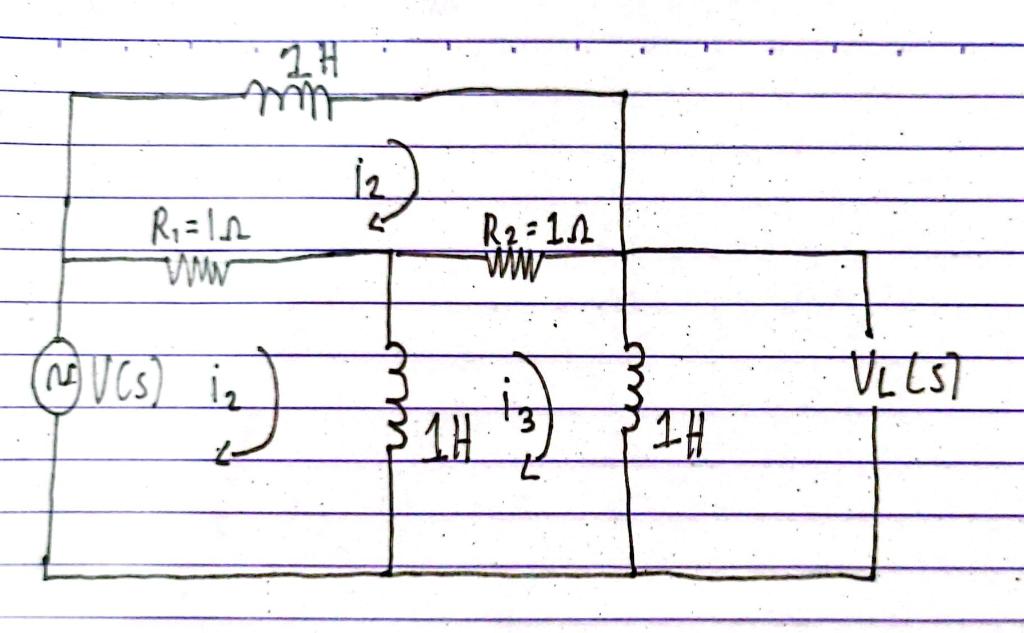 1 H
i₂
R₁=1Ω R₂=1Ω
V(s) i₂ 1H i₃ 1H VL(s)